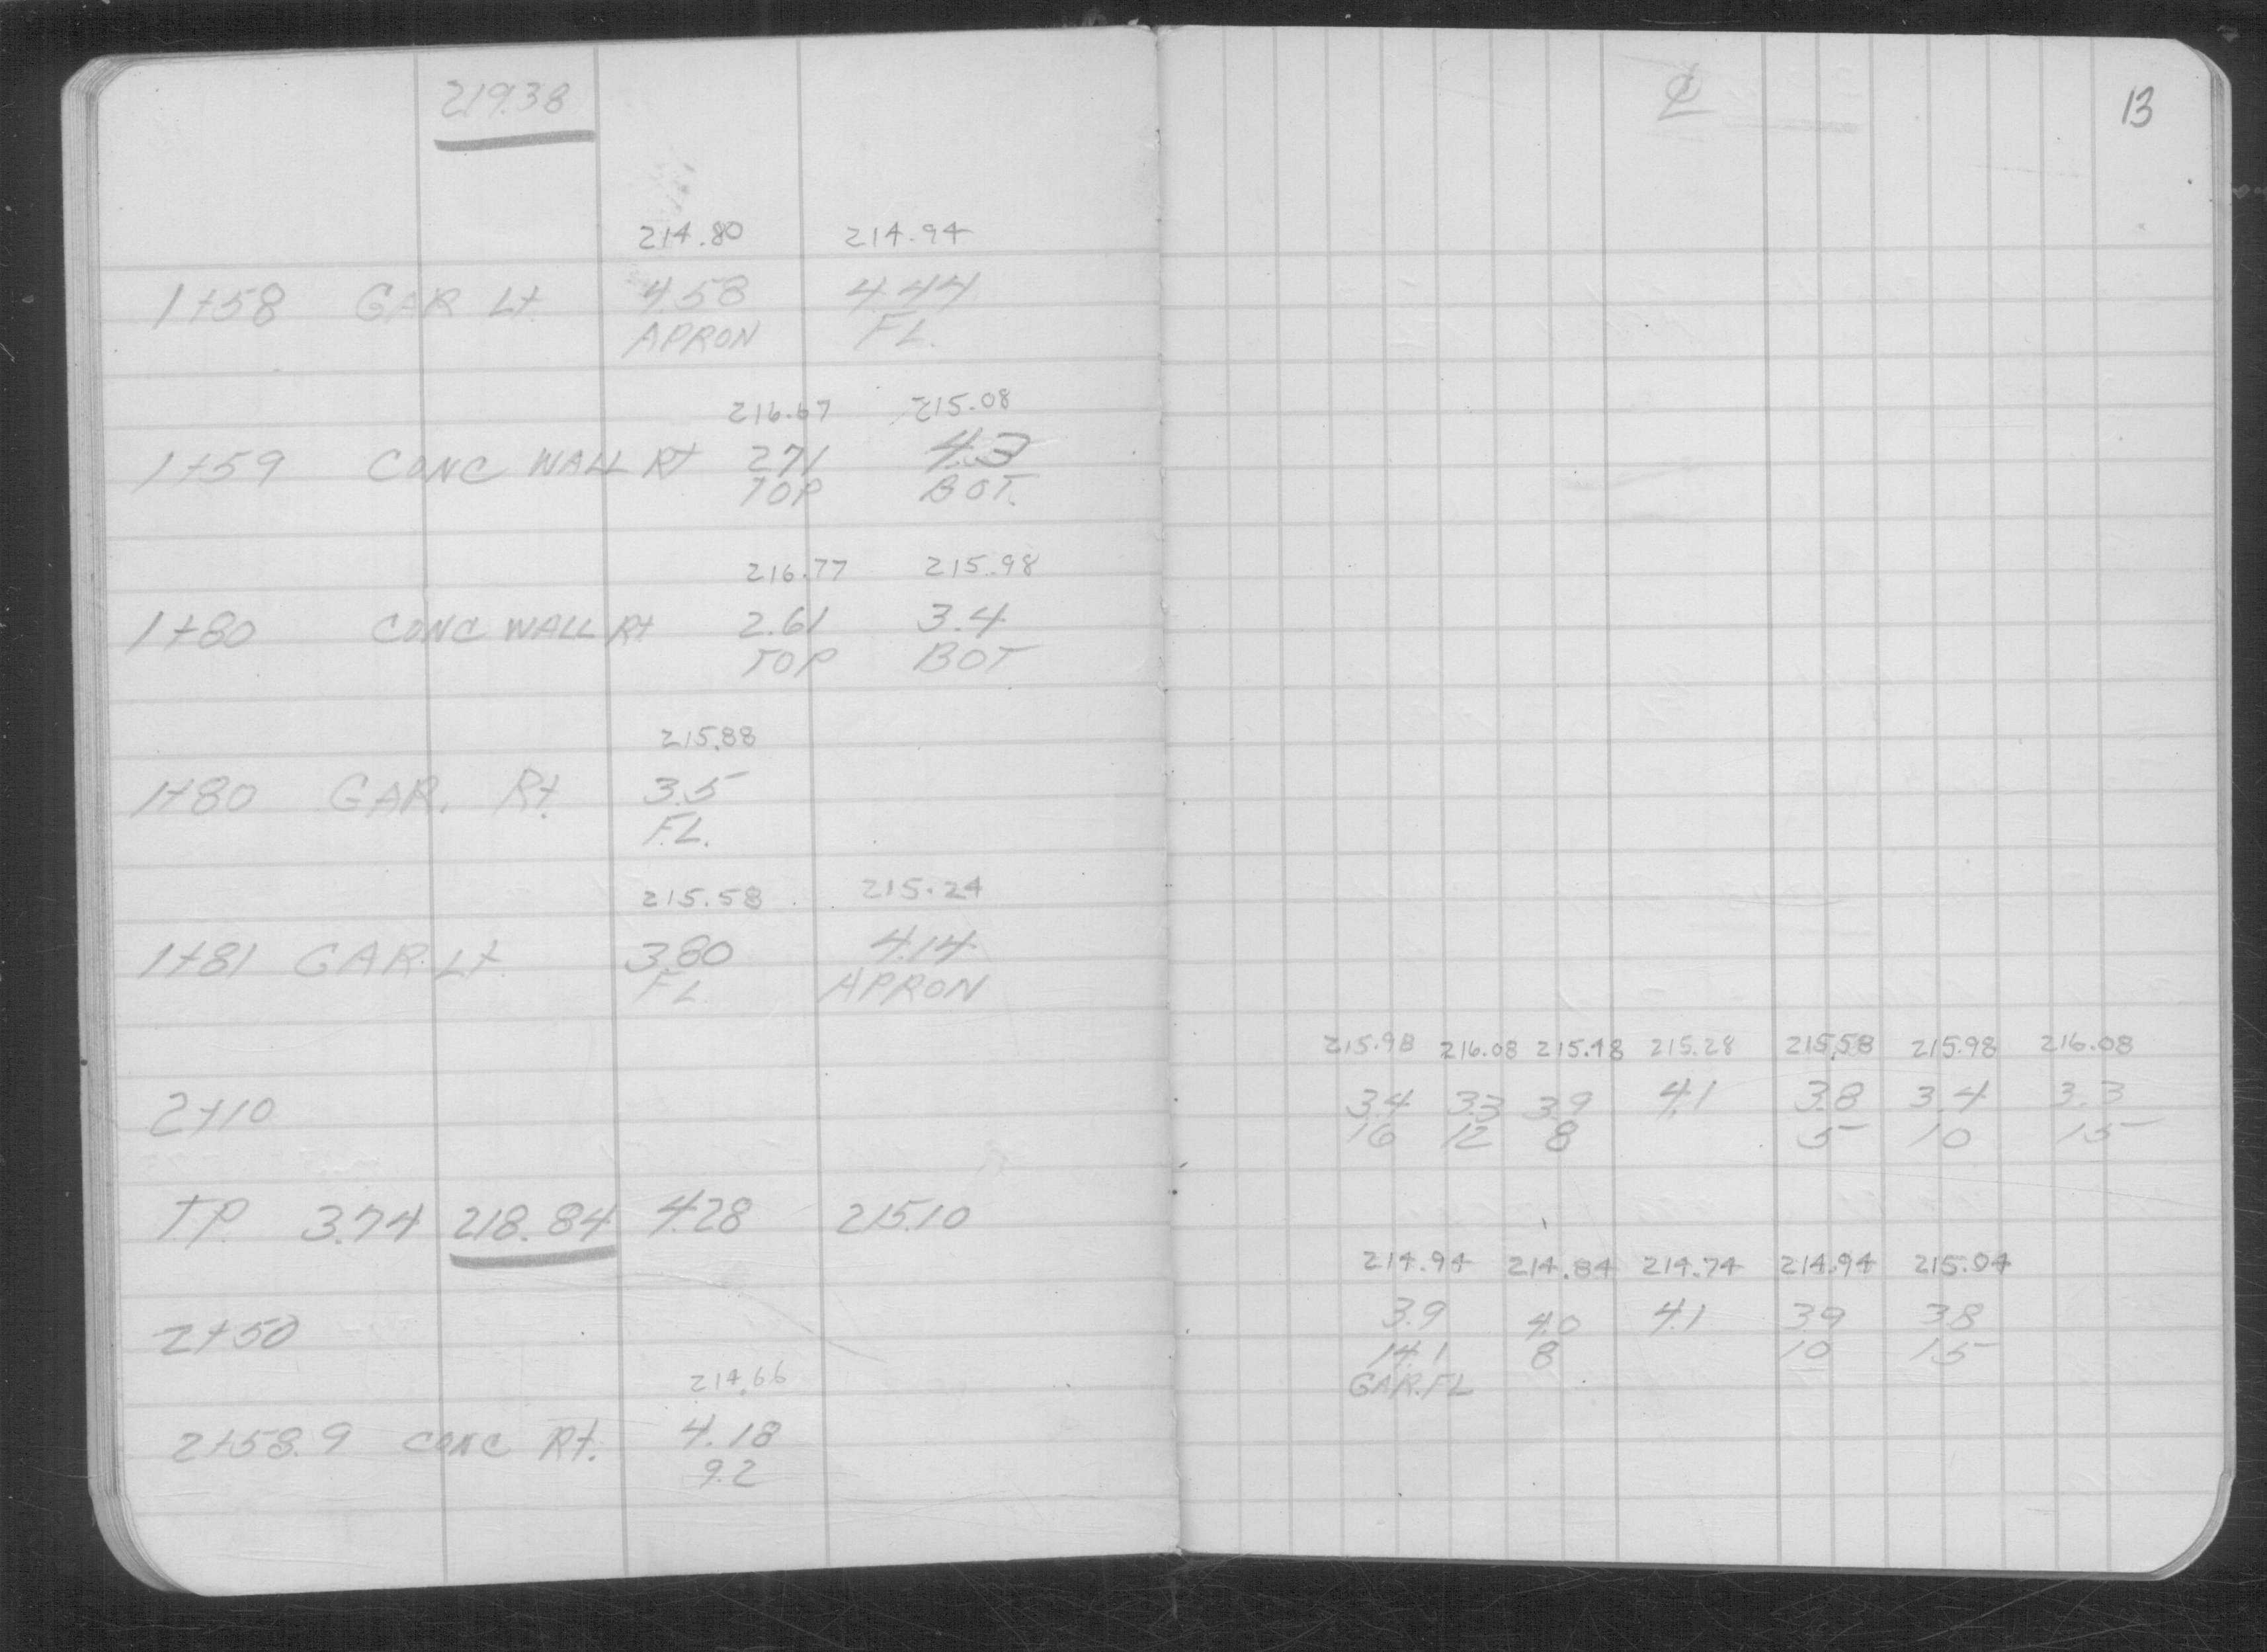 219.38
214.80 214.94
1+58 GAR Lt. 4.58 4.44
APRON FL.
216.67 215.08
1+59 CONC WALL Rt 2.71 4.3
TOP BOT.
216.77 215.98
1+80 CONC WALL Rt 2.61 3.4
TOP BOT
215.88
1+80 GAR. Rt. 3.5
FL.
215.58 215.24
1+81 GAR. Lt. 3.80 4.14
FL. APRON
2+10
T.P. 3.74 218.84 4.28 215.10
2+50
214.66
2+58.9 CONC Rt. 4.18
9.2
℄ 13
215.98 216.08 215.48 215.28 215.58 215.98 216.08
3.4 3.3 3.9 4.1 3.8 3.4 3.3
16 12 8 5 10 15
214.94 214.84 214.74 214.94 215.04
3.9 4.0 4.1 3.9 3.8
14.1 8 10 15
GAR. FL